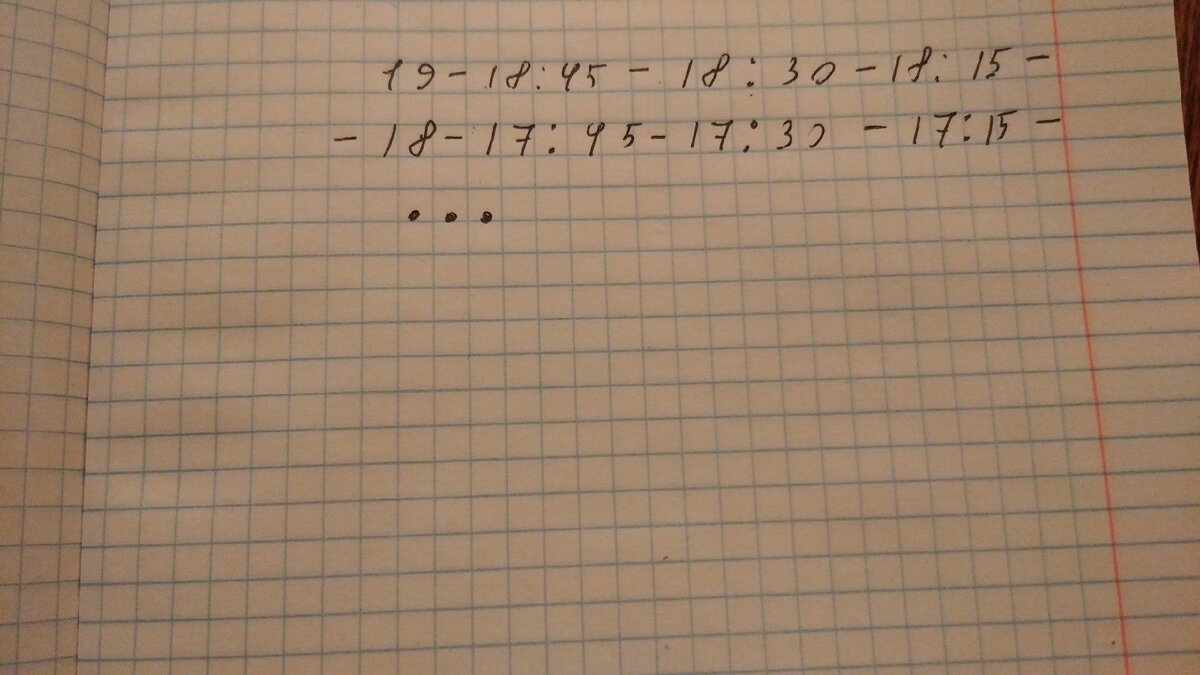 19 - 18:45 - 18:30 - 18:15 -
- 18 - 17:45 - 17:30 - 17:15 -
...